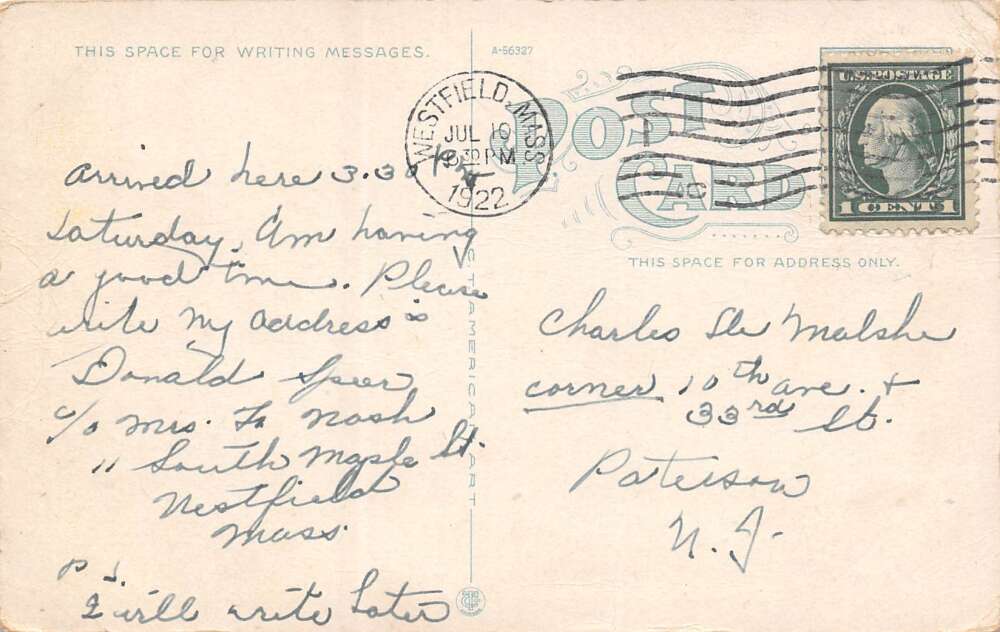 THIS SPACE FOR WRITING MESSAGES.
arrived here 3.30
Saturday. Am having
a good time. Please
write My address is
Donald Speer
c/o Mrs. Nash
11 South Maple St.
Westfield
Mass.
P.S.
I will write later
A-56327
POST
CARD
WESTFIELD, MASS
JUL 10
30 PM
1922
U.S. POSTAGE
1 CENT 1
THIS SPACE FOR ADDRESS ONLY.
Charles De Malshe
corner 10th ave. +
33rd St.
Paterson
N.J.